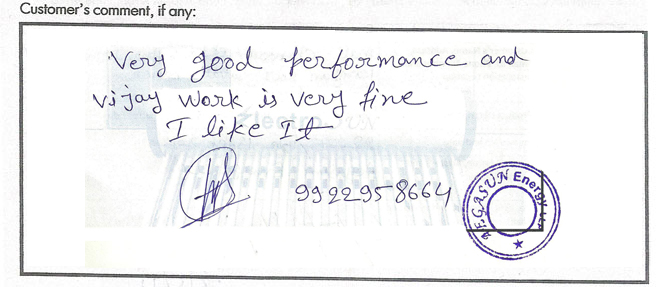 Customer's comment, if any:
Very good performance and
vijay work is very fine
I like It
9922958664